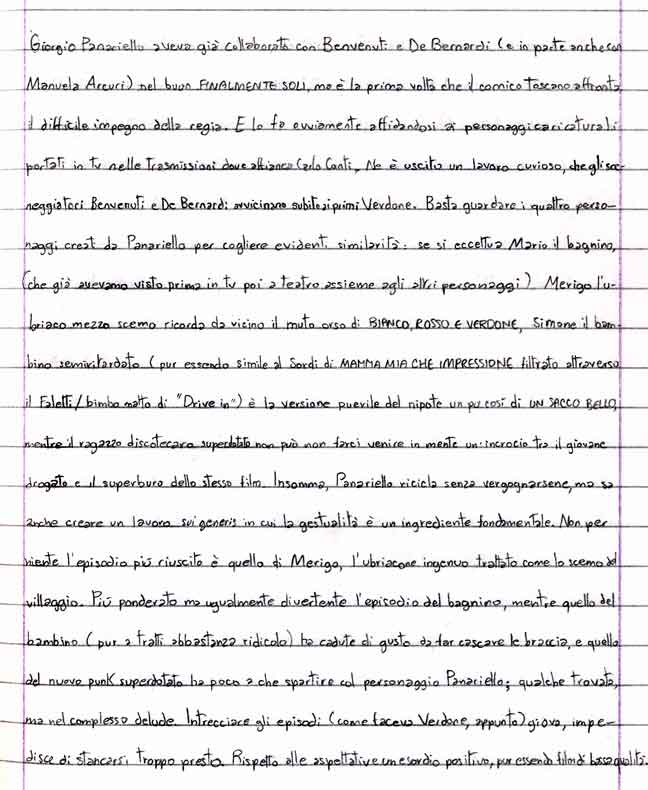 Giorgio Panariello aveva già collaborato con Benvenuti e De Bernardi (e in parte anche con
Manuela Arcuri) nel buon FINALMENTE SOLI, ma è la prima volta che il comico toscano affronta
il difficile impegno della regia. E lo fa ovviamente affidandosi ai personaggi caricaturali
portati in tv nelle trasmissioni dove affianca Carlo Conti. Ne è uscito un lavoro curioso, che gli sce-
neggiatori Benvenuti e De Bernardi avvicinano subito ai primi Verdone. Basta guardare i quattro perso-
naggi creati da Panariello per cogliere evidenti similarità: se si eccettua Mario il bagnino,
(che già avevamo visto prima in tv poi a teatro assieme agli altri personaggi) Merigo l'u-
briaco mezzo scemo ricorda da vicino il muto orso di BIANCO, ROSSO E VERDONE, Simone il bam-
bino semiritardato (pur essendo simile al Sordi di MAMMA MIA CHE IMPRESSIONE filtrato attraverso
il Faletti/bimbo matto di "Drive in") è la versione puerile del nipote un po' così di UN SACCO BELLO,
mentre il ragazzo discotecaro superdotato non può non farci venire in mente un incrocio tra il giovane
drogato e il superburo dello stesso film. Insomma, Panariello ricicla senza vergognarsene, ma sa
anche creare un lavoro sui generis in cui la gestualità è un ingrediente fondamentale. Non per
niente l'episodio più riuscito è quello di Merigo, l'ubriacone ingenuo trattato come lo scemo del
villaggio. Più ponderato ma ugualmente divertente l'episodio del bagnino, mentre quello del
bambino (pur a tratti abbastanza ridicolo) ha cadute di gusto da far cascare le braccia, e quello
del nuovo punk superdotato ha poco a che spartire col personaggio Panariello; qualche trovata,
ma nel complesso delude. Intrecciare gli episodi (come faceva Verdone, appunto) giova, impe-
disce di stancarsi troppo presto. Rispetto alle aspettative un esordio positivo, pur essendo film di bassa qualità.